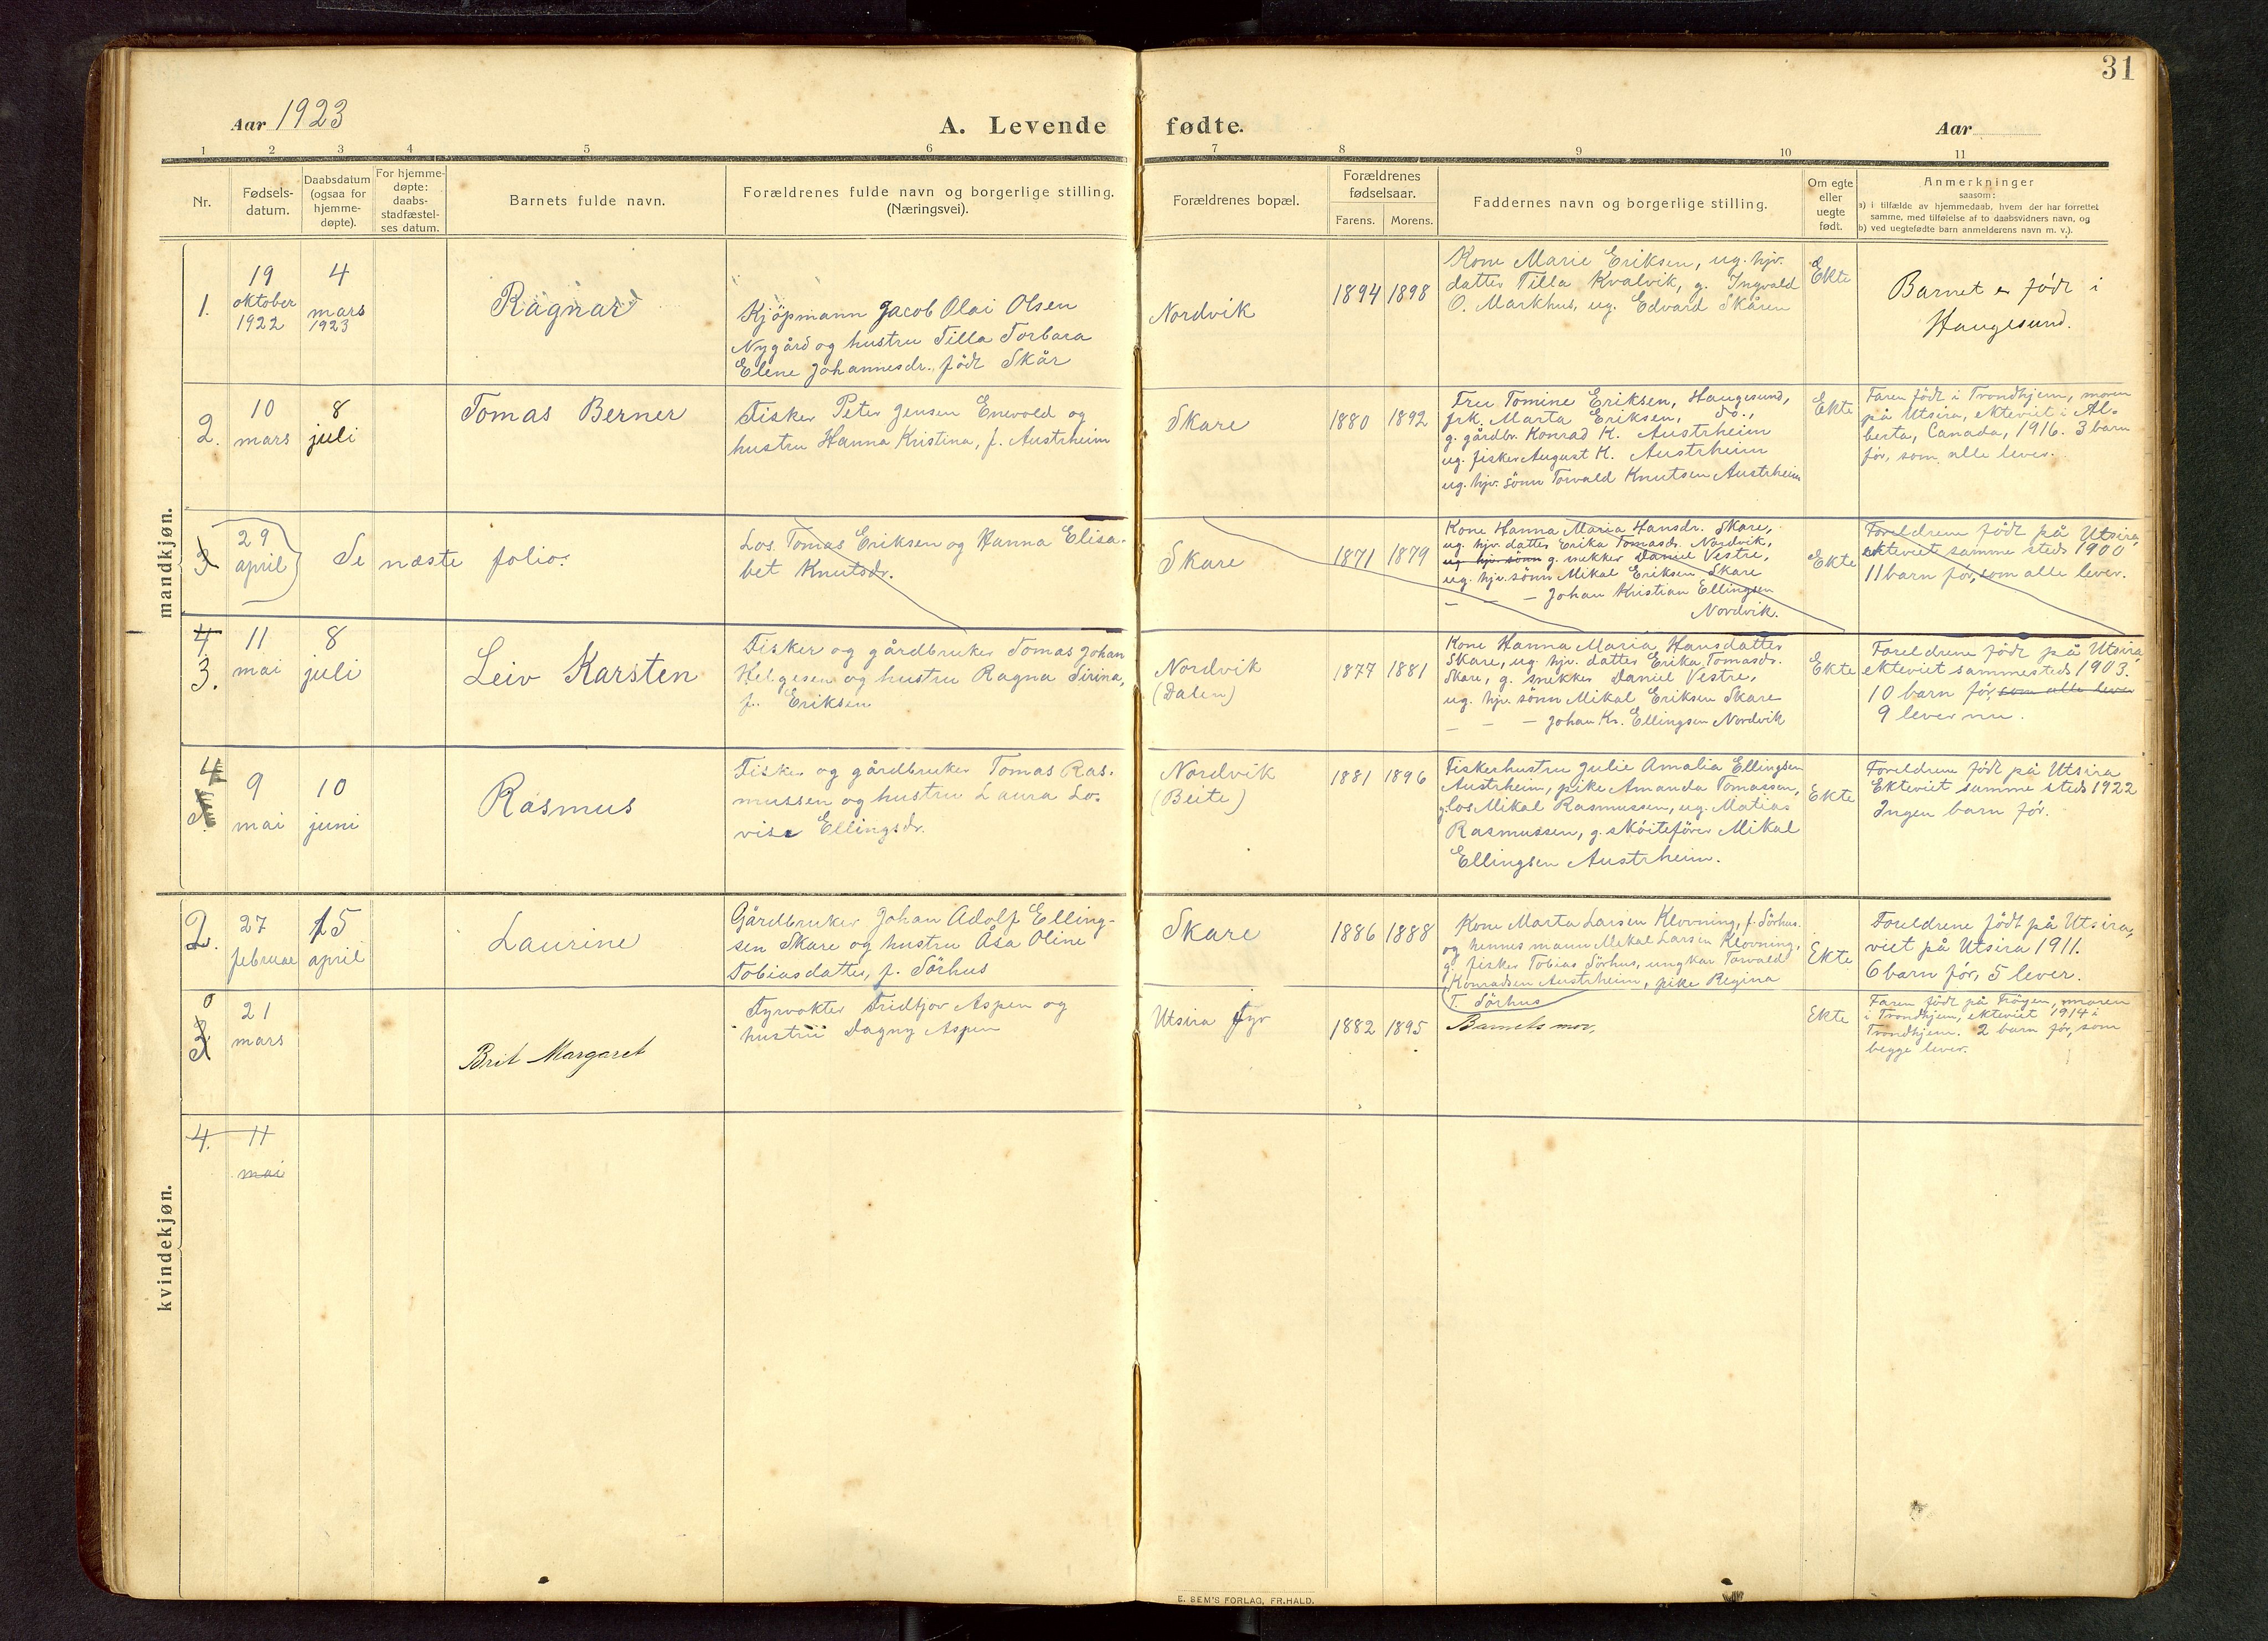 31
Aar 1923
A. Levende fødte.
Aar
1 2 3 4 5 6 7 8 9 10 11
Nr.
Fødsels-
datum.
Daabsdatum
(ogsaa for
hjemme-
døpte).
For hjemme-
døpte:
daabs-
stadfæstel-
ses datum.
Barnets fulde navn.
Forældrenes fulde navn og borgerlige stilling.
(Næringsvei).
Forældrenes bopæl.
Forældrenes
fødselsaar.
Farens. Morens.
Faddernes navn og borgerlige stilling.
Om egte
eller
uegte
født.
Anmerkninger
saasom:
a) i tilfælde av hjemmedaab, hvem der har forrettet
samme, med tilføielse af to daabsvidners navn, og
b) ved uegtefødte barn anmelderens navn m. v.).
mandkjøn.
1.
19
oktober
1922
4
mars
1923
Ragnar
Kjöpmann Jacob Olai Olsen
Nygård og hustru Tilla Torbara
Elene Johannesdr., födt Skår
Nordvik
1894 1898
Kone Marie Eriksen, ug. hjv.
datter Tilla Kvalvik, g. Ingvald
O. Markhus, ug. Edvard Skåren
Ekte
Barnet er födt i
Haugesund.
2.
10
mars
8
juli
Tomas Berner
Fisker Peter Jensen Enevold og
hustru Hanna Kristina, f. Austrheim
Skare
1880 1892
Fru Tomine Eriksen, Haugesund,
frk. Marta Eriksen, do.,
g. gårdbr. Konrad K. Austrheim
ug. fisker August K. Austrheim
ug. hjv. sönn Torvald Knutsen Austrheim
Ekte
Faren födt i Trondhjem, moren
på Utsira, ekteviet i Al-
berta, Canada, 1916. 3 barn
för, som alle lever.
3
29
april
Se næste folio.
Los Tomas Eriksen og Hanna Elisa-
bet Knutsdr.
Skare
1871 1879
Kone Hanna Maria Hansdr. Skare,
ug. hjv. datter Erika Tomasdr. Nordvik,
ug. hjv. sönn g. snekker Daniel Vestre,
ug. hjv. sönn Mikal Eriksen Skare
— — — Johan Kristian Ellingsen
Nordvik.
Ekte
Foreldrene födt på Utsira,
ekteviet samme steds 1900
11 barn för, som alle lever.
4
3.
11
mai
8
juli
Leiv Karsten
Fisker og gårdbruker Tomas Johan
Helgesen og hustru Ragna Sirina,
f. Eriksen
Nordvik
(Dalen)
1877 1881
Kone Hanna Maria Hansdatter
Skare, ug. hjv. datter Erika Tomasdr.
Skare, g. snekker Daniel Vestre,
ug. hjv. sönn Mikal Eriksen Skare
— — Johan Kr. Ellingsen Nordvik
Ekte
Foreldrene födt på Utsira,
ekteviet sammesteds 1903.
10 barn för, som alle lever
9 lever nu.
4
9
mai
10
juni
Rasmus
Fisker og gårdbruker Tomas Ras-
mussen og hustru Laura Lo-
vise Ellingsdr.
Nordvik
(Beite)
1881 1896
Fiskerhustru Julie Amalia Ellingsen
Austrheim, pike Amanda Tomassen,
g. los Mikal Rasmussen, ug. Matias
Rasmussen, g. sköitefører Mikal
Ellingsen Austrheim.
Ekte
Foreldrene födt på Utsira
Ekteviet samme steds 1922
Ingen barn för.
kvindekjøn.
2.
27
februar
15
april
Laurine
Gårdbruker Johan Adolf Elling-
sen Skare og hustru Åsa Oline
Tobiasdatter, f. Sörhus
Skare
1886 1888
Kone Marta Larsen Klovning, f. Sörhus.
og hennes mann Mikal Larsen Klovning,
g. fisker Tobias Sörhus, ungkar Torvald
Konradsen Austrheim, pike Regina
T. Sörhus
Ekte
Foreldrene födt på Utsira,
viet på Utsira 1911.
6 barn för, 5 lever.
3
21
mars
Brit Margaret
Fyrvokter Fridtjov Aspen og
hustru Dagny Aspen
Utsira fyr
1882 1895
Barnets mor,
Ekte
Faren födt på Fröyen, moren
i Trondhjem, ekteviet 1914 i
Trondhjem. 2 barn för, som
begge lever.
4.
11
mai
E. SEM'S FORLAG, FR.HALD.